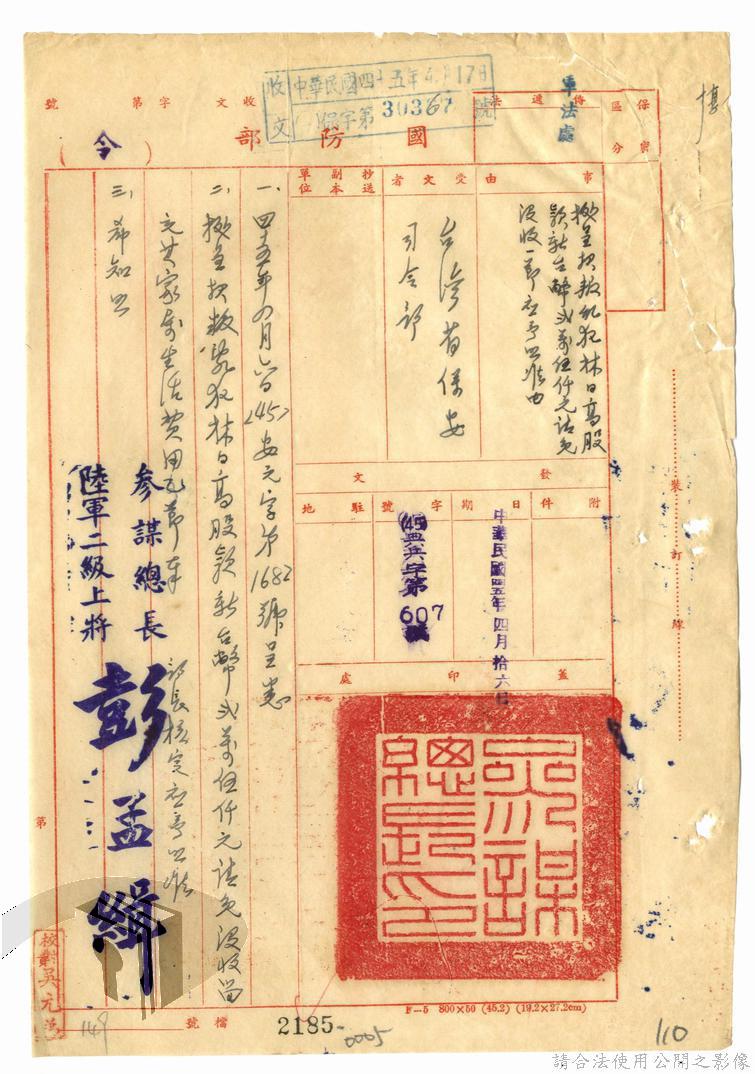 保密
區分
傳遞
軍法處
國防部
（令）
收文
中華民國四十五年4月17日
字第30367號
收文 字第 號
事由
據呈為叛亂犯林日高股
款新台幣弍萬伍仟元請免
沒收一節應予照准由
受文者
台灣省保安
司令部
抄送
副本
單位
附件
發文
日期
中華民國四五年四月拾六日
字號
(45)典典字第
607
號
駐地
蓋印處
參謀總長印
一、四十五年四月六日(45)安元字第1682號呈悉
二、據呈為叛亂犯林日高股款新台幣弍萬伍仟元請免沒收留
充其家屬生活費用一節奉
部長核定應予照准
三、希知照
參謀總長
陸軍二級上將
彭孟緝
校對吳元
裝訂線
第
檔號
2185
0005
149
110
F—5 800×50 (45.2) (19.2×27.2cm)
請合法使用公開之影像